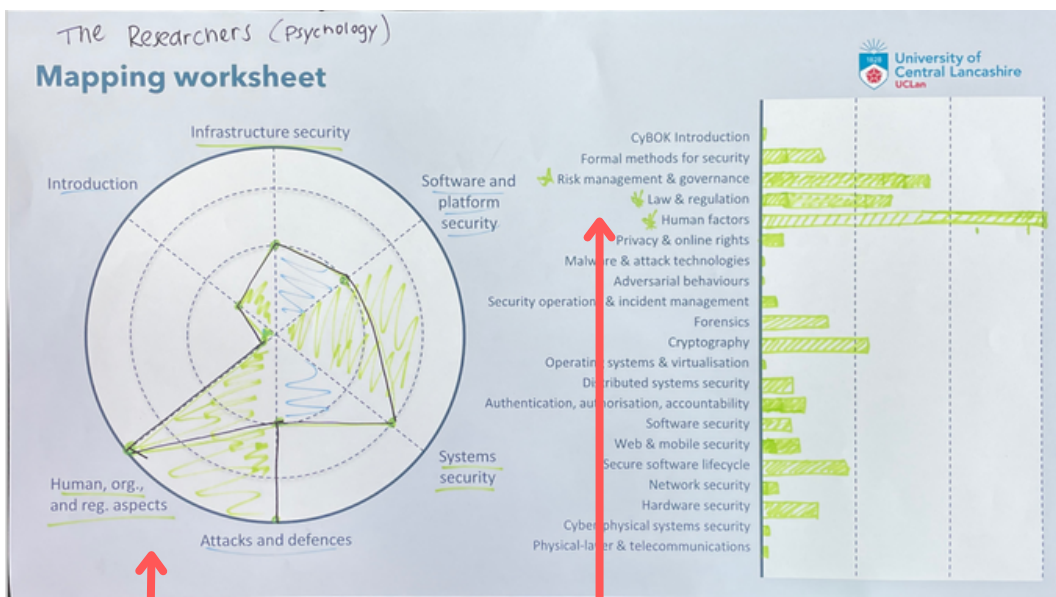 The Researchers (Psychology)
Mapping worksheet
1828
University of
Central Lancashire
UCLan
Infrastructure security
Introduction
Software and
platform
security
Systems
security
Human, org.,
and reg. aspects
Attacks and defences
CyBOK Introduction
Formal methods for security
Risk management & governance
Law & regulation
Human factors
Privacy & online rights
Malware & attack technologies
Adversarial behaviours
Security operations & incident management
Forensics
Cryptography
Operating systems & virtualisation
Distributed systems security
Authentication, authorisation, accountability
Software security
Web & mobile security
Secure software lifecycle
Network security
Hardware security
Cyber physical systems security
Physical-layer & telecommunications